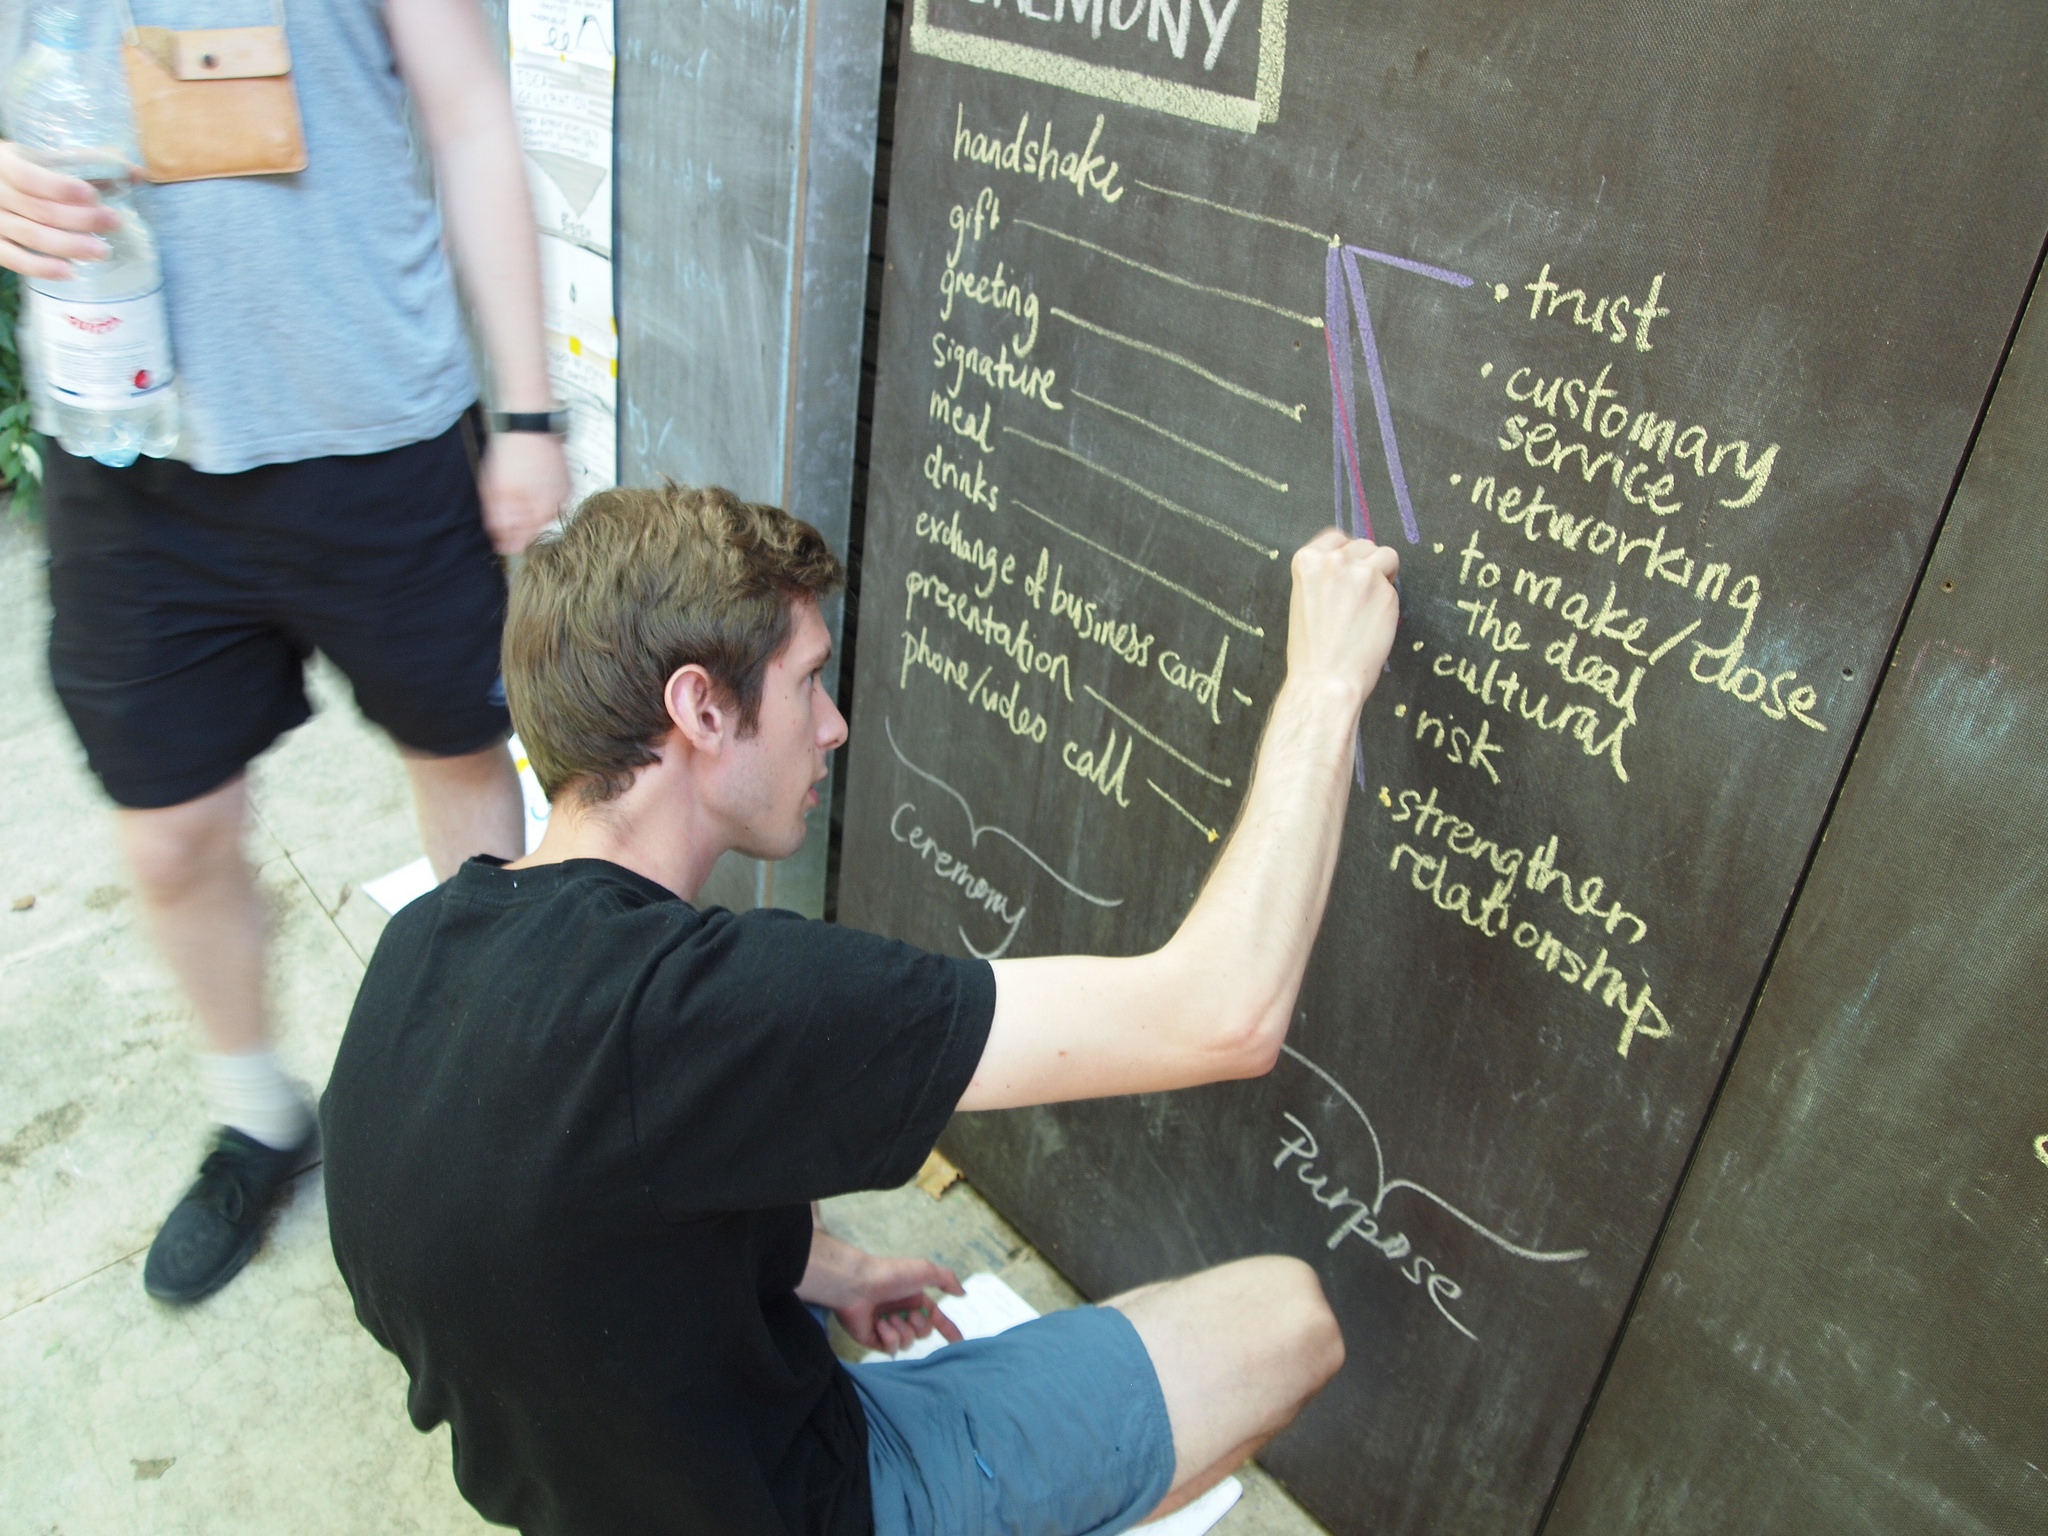 handshake
gift
greeting
signature
meal
drinks
exchange of business card
presentation
phone/video call
Ceremony
trust
customary
service
networking
to make/close
the deal
cultural
risk
strengthen
relationship
Purpose
IDEA
GENERATION